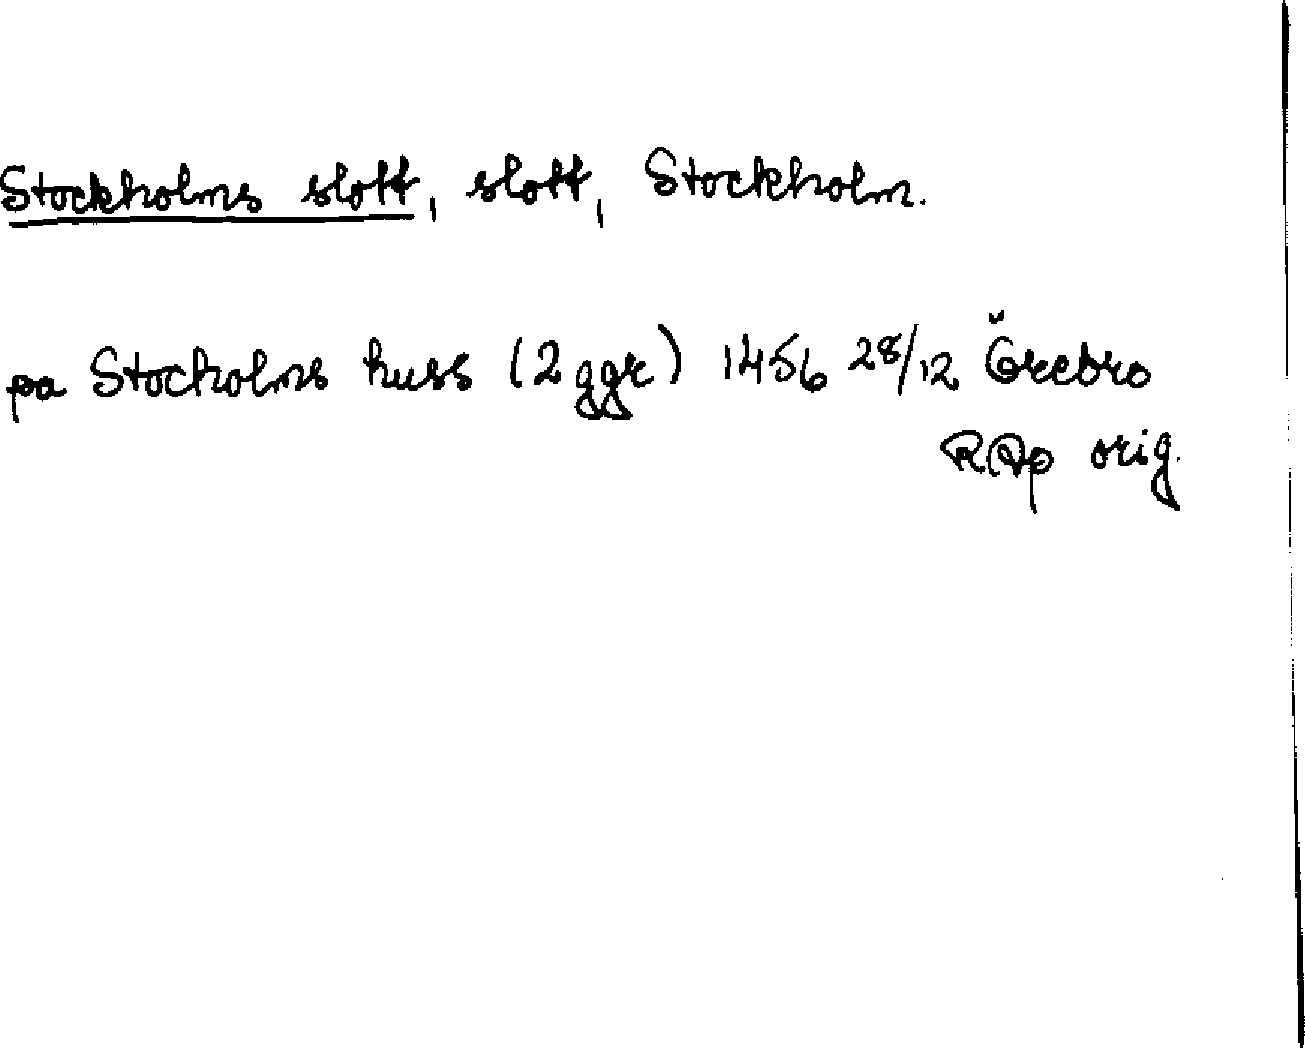 Stockholms slott, slott, Stockholm.
pa Stocholms huss (2 ggr) 1456 28/12 Örebro
RAp orig.